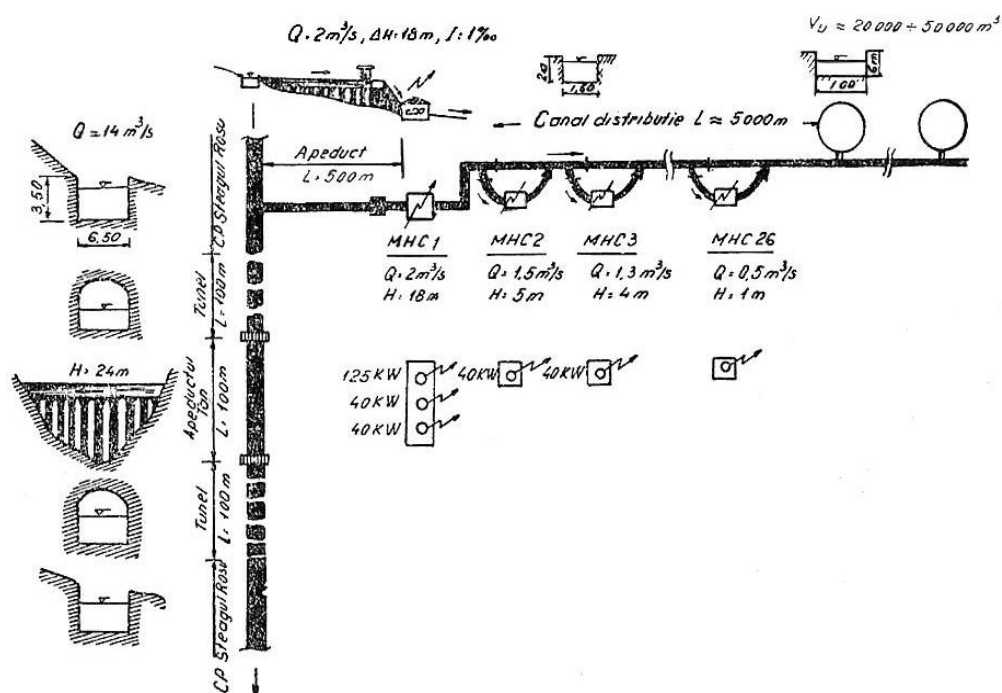 Q=2m³/s, ΔH=18m, I=1‰
Vu ≈ 20000 ÷ 50000 m³
20
1,60
6m
100
Canal distributie L ≈ 5000m
Q = 14 m³/s
3,50
6,50
H = 24m
C.P Steagul Rosu
Tunel
L = 100m
Apeductul
Ton
L = 100m
Tunel
L = 100m
C.P Steagul Rosu
Apeduct
L = 500m
MHC 1
Q = 2m³/s
H = 18m
MHC 2
Q = 1,5m³/s
H = 5m
MHC 3
Q = 1,3m³/s
H = 4m
MHC 26
Q = 0,5m³/s
H = 1m
125 KW
40 KW
40 KW
40KW
40KW